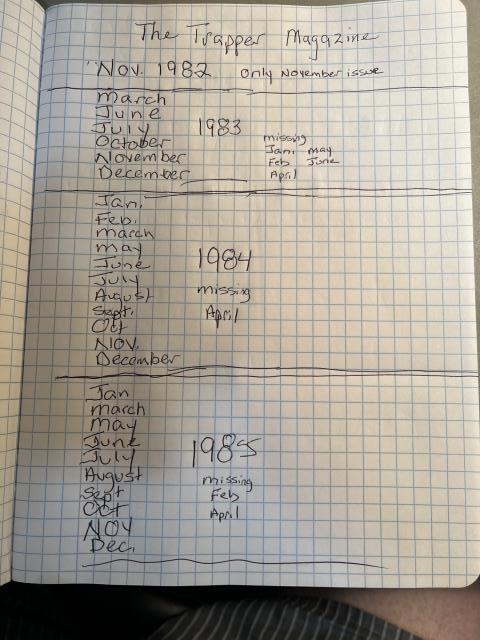 The Trapper Magazine
Nov. 1982 only November issue
March
June
July
October
November
December
1983
missing
Jan. May
Feb June
April
Jan.
Feb.
March
May
June
July
August
Sept.
Oct
Nov.
December
1984
missing
April
Jan
March
May
June
July
August
Sept
Oct
Nov
Dec.
1985
missing
Feb
April